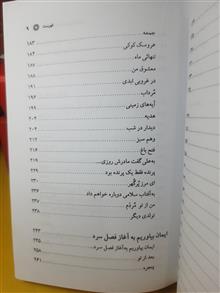 ۹ فهرست
جمعه ۱۸۳
عروسک کوکی ۱۸۵
تنهائی ماه ۱۸۸
معشوق من
در غروبی ابدی
مُرداب
آیه‌های زمینی ۱۹۹
هدیه
دیدار در شب
وهم سبز
فتح باغ
به‌علی گفت مادرش روزی...
پرنده فقط یک پرنده بود
ای مرز پُرگهر
به آفتاب سلامی دوباره خواهم داد
من از تو مُردم
تولدی دیگر ۲۳۸
ایمان بیاوریم به آغاز فصل سرد ۲۴۳
ایمان بیاوریم به‌آغاز فصل سرد... ۲۴۵
بعد از تو
پنجره ۲۶۱